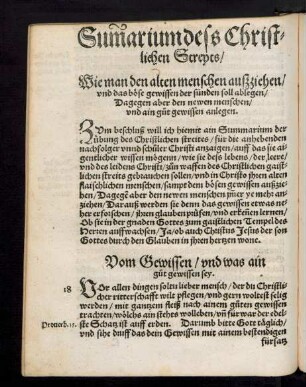 Sum̃arium dess Christ⸗
lichen Streyts/
Wie man den alten menschen außziehen/
vnd das böse gewissen der sünden soll ablegen/
Dagegen aber den newen menschen/
vnd ain güt gewissen anlegen.
Zum beschluß will ich hiemit ain Summarium der
übung des Christlichen streites / für die anhebenden
nachfolger vnnd schüler Christi anzaigen/ auff das sie
aigentlicher wissen mögenn / wie sie dess lebens / der leer/
vnd des leidens Christi / zun waffen des Christlichen gaistlichen
streits gebrauchen sollen/ vnd in Christo jhren alten
flaischlichen menschen/ sampt dem bösen gewissen außziehen/
Dagegẽ aber den newen menschen ye mehr anziehen/
Darauß werden sie denn das gewissen etwas neher
erforschen/ jhren glauben prüfen/ vnd erkennen lernen/
Ob sie in der gnaden Gottes zum gaistlichen Tempel des
Herren auffwachsen / Ja/ ob auch Christus Jesus der son
Gottes durch den Glauben in jhren hertzen wone.
Vom Gewissen / vnd was ain
güt gewissen sey.
18
Vor allen dingen solt lieber mensch / der du Christlicher
ritterschafft wilt pflegen/ vnd gern woltest selig
werden / mit gantzem fleiß nach ainem güten gewissen
trachten/ wölchs ain stehtes wolleben/ vñ für war der edelste
Schatz ist auff erden. Darumb bitte Gott täglich/
Prouerb. 15.
vnd sihe drauff das dein Gewissen mit ainem bestendigen
fürsatz